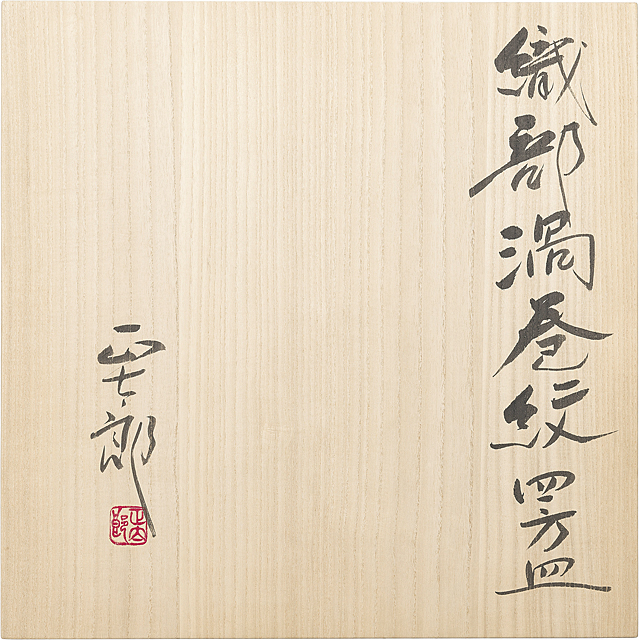 織部渦巻紋四方皿
正士郎